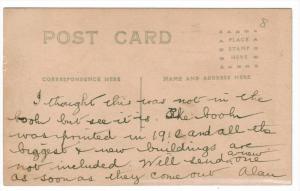 8
POST CARD
PLACE
STAMP
HERE
CORRESPONDENCE HERE
NAME AND ADDRESS HERE
I thought this was not in the
book but see it is. The book
was printed in 1912 and all the
biggest & new buildings are
not included. Will send a new one
as soon as they come out Alan